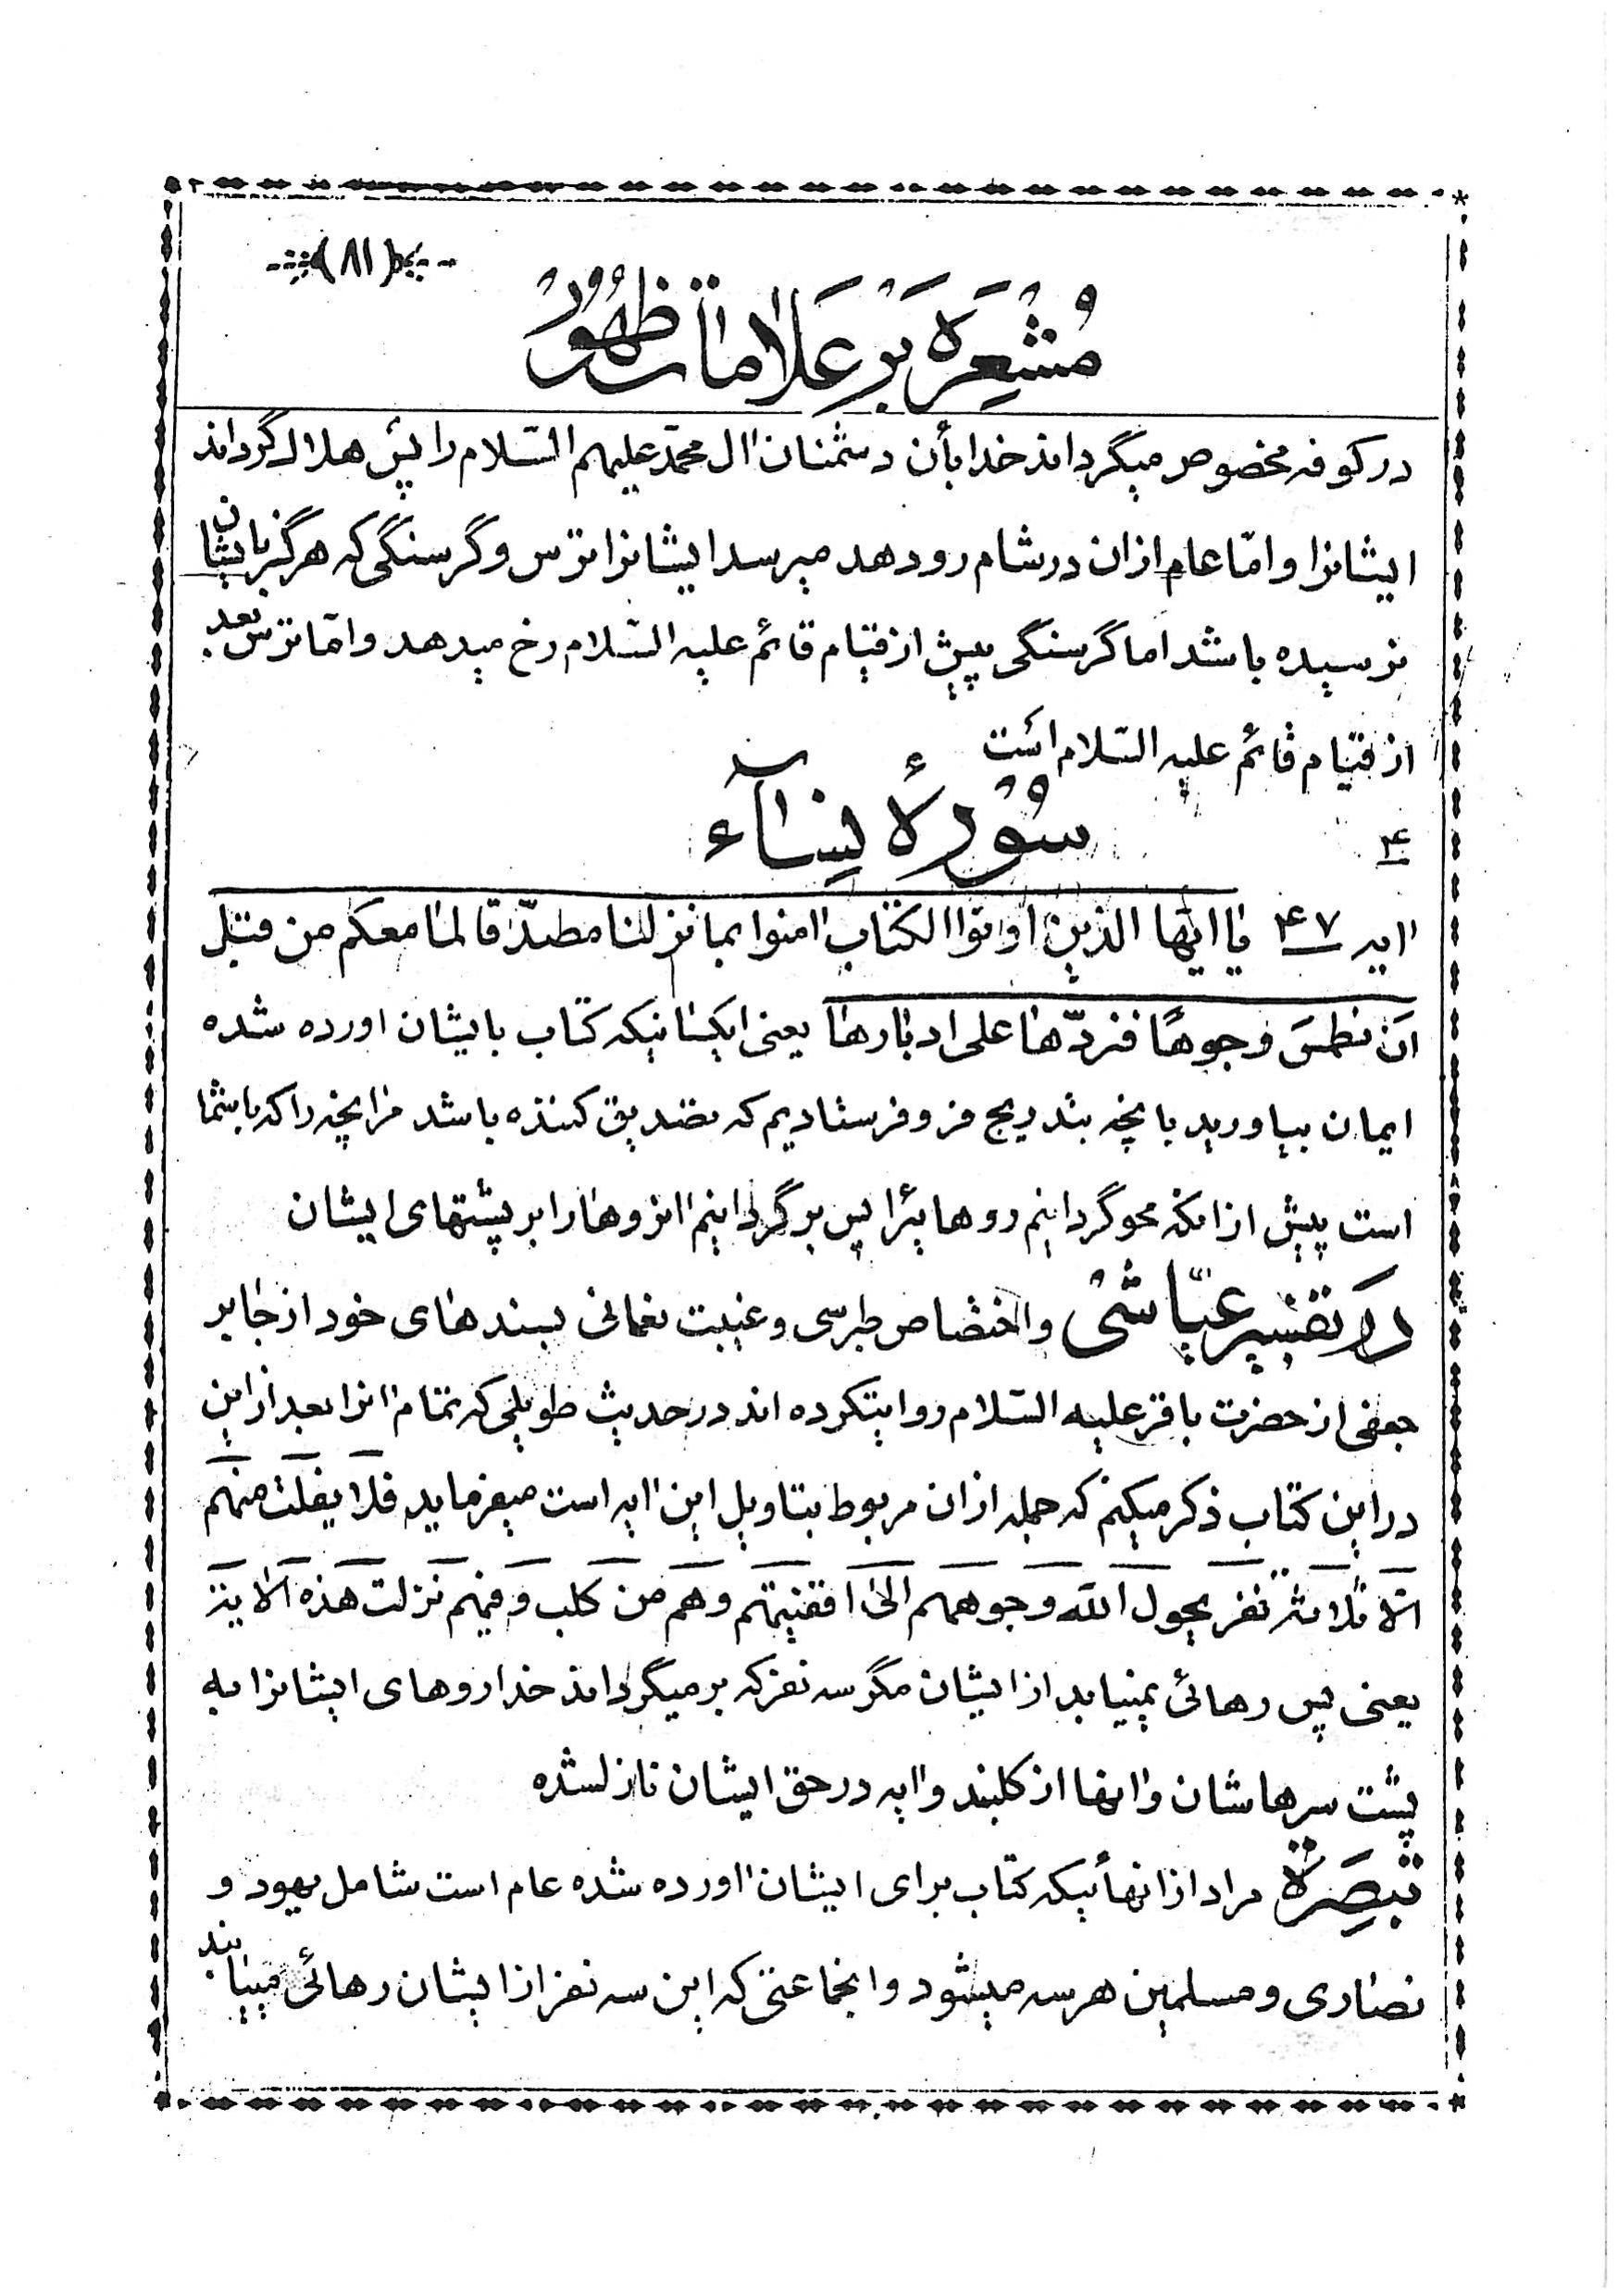 (۸۱)
مُشْعِرَه بَرْ عَلاماتِ ظُهُورْ
در کوفه مخصوص میگرداند خدا بأن دشمنان ال محمّد علیهم السّلام را پس هلاک گرداند
ایشانرا و امّا عام ازان در شام رو دهد میرسد ایشانرا ترس و گرسنگی که هرگز بایشان
نرسیده باشد اما گرسنگی پیش از قیام قائم علیه السّلام رخ میدهد و امّا ترس بعد
از قیام قائم علیه السّلام است
سُورهٔ نِسآء
۴
ایه ۴۷ یا ایّها الذین اوتوا الکتاب امنوا بما نزلنا مصدّقا لما معکم من قبل
ان نطمسَ وجوهًا فنردّها علی ادبارها یعنی ایکسانیکه کتاب بایشان اورده شده
ایمان بیاورید بانچه بتدریج فرو فرستادیم که تصدیق کننده باشد مرانچه را که باشما
است پیش از انکه محو گردانیم روهائیرا پس برگردانیم انروها را بر پشتهای ایشان
در تفسیر عیّاشی و اختصاص طبرسی و غیبت نعمانی بسندهای خود از جابر
جعفی از حضرت باقر علیه السّلام روایتکرده اند در حدیث طویلی که تمام انرا بعد از این
در این کتاب ذکر میکنم که جمله ازان مربوط بتاویل این ایه است میفرماید فلا یفلت منهم
الّا ثلاثة نفر یحول الله وجوههم الی اقفیتهم وهم من کلب وفیهم نزلت هذه الایة
یعنی پس رهائی نمییابد از ایشان مگر سه نفر که برمیگرداند خدا روهای ایشانرا به
پشت سرهاشان و انها از کلبند و ایه در حق ایشان نازلشده
تبصِرَةٌ مراد از انهائیکه کتاب برای ایشان اورده شده عام است شامل یهود و
نصاری و مسلمین هر سه میشود و انجماعتی که این سه نفر از ایشان رهائی مییابند